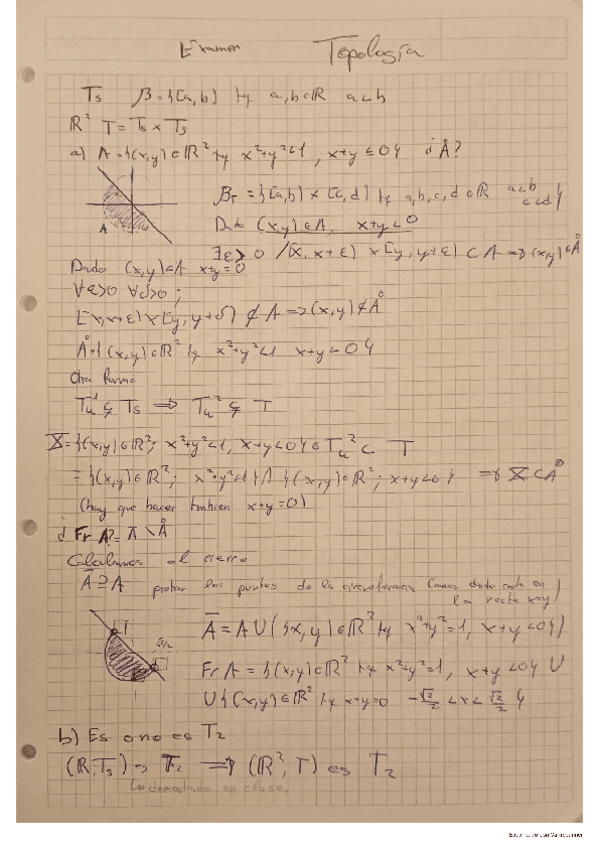 Examen Topología
Ts β = {[a,b) tq a,b∈ℝ a<b
ℝ² T = Ts × Ts
a) A = {(x,y)∈ℝ² tq x²+y²<1, x+y≤0} ¿Å?
A
β_T = {[a,b) × [c,d) tq a,b,c,d∈ℝ a<b c<d}
Dado (x,y)∈A, x+y<0
∃ε>0 / [x, x+ε) × [y, y+ε) ⊂ A ⇒ (x,y)∈Å
Dado (x,y)∈A x+y=0
∀ε>0 ∀δ>0;
[x, x+ε) × [y, y+δ) ⊄ A ⇒ (x,y)∉Å
Å = {(x,y)∈ℝ² tq x²+y²<1 x+y<0}
Otra forma
Tu¹ ⊊ Ts ⇒ Tu² ⊊ T
X = {(x,y)∈ℝ²; x²+y²<1, x+y<0} ∈ Tu² ⊂ T
= {(x,y)∈ℝ²; x²+y²<1} ∩ {(x,y)∈ℝ²; x+y<0} ⇒ X ⊂ Å
(hay que hacer también x+y=0)
¿Fr A? = Ā \ Å
Calculamos el cierre
Ā ⊇ A probar los puntos de la circunferencia en
la recta
Ā = A ∪ ({x,y)∈ℝ² tq x²+y²=1, x+y<0})
Fr A = {(x,y)∈ℝ² tq x²+y²=1, x+y<0} ∪
∪ {(x,y)∈ℝ² tq x+y=0 -√2/2 < x < √2/2}
b) Es o no es T₂
(ℝ,Ts) es T₂ ⇒ (ℝ², T) es T₂
↳ demostrado en clase.